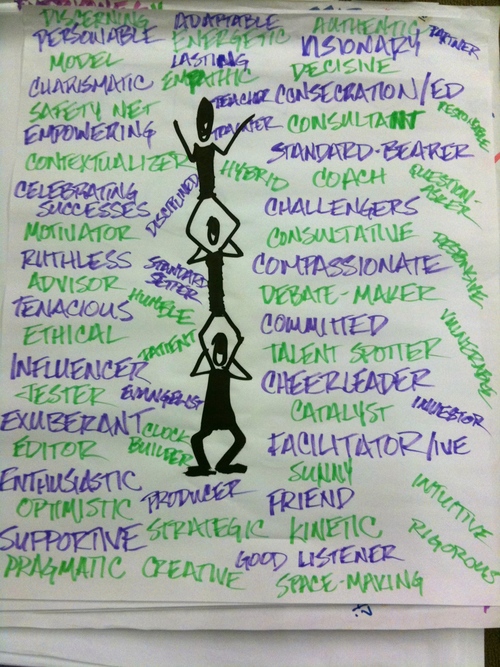 DISCERNING
PERSONABLE
MODEL
CHARISMATIC
SAFETY NET
EMPOWERING
CONTEXTUALIZER
CELEBRATING
SUCCESSES
MOTIVATOR
RUTHLESS
ADVISOR
TENACIOUS
ETHICAL
INFLUENCER
JESTER
EXUBERANT
EDITOR
ENTHUSIASTIC
OPTIMISTIC
SUPPORTIVE
PRAGMATIC
ADAPTABLE
ENERGETIC
LASTING
EMPATHIC
TEACHER
HYBRID
DISCIPLINED
STANDARD
SETTER
HUMBLE
PATIENT
EVANGELIST
CLOCK
BUILDER
PRODUCER
STRATEGIC
CREATIVE
AUTHENTIC
VISIONARY
DECISIVE
CONSECRATION/ED
CONSULTANT
STANDARD-BEARER
COACH
CHALLENGERS
CONSULTATIVE
COMPASSIONATE
DEBATE-MAKER
COMMITTED
TALENT SPOTTER
CHEERLEADER
CATALYST
FACILITATOR/IVE
SUNNY
FRIEND
KINETIC
GOOD LISTENER
SPACE-MAKING
PARTNER
RESPONSIBLE
QUESTION-
ASKER
RESPONSIVE
VULNERABLE
INVESTOR
INTUITIVE
RIGOROUS